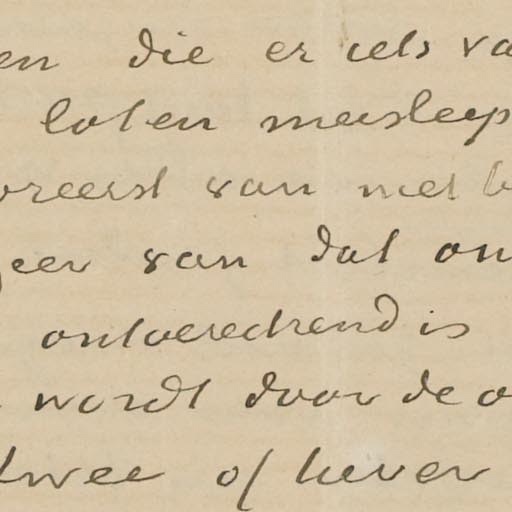 en die er iets va
loten meesleep
oreerst van met b
geer van dat on
ontoerechend is
wordt door de o
twee of liever